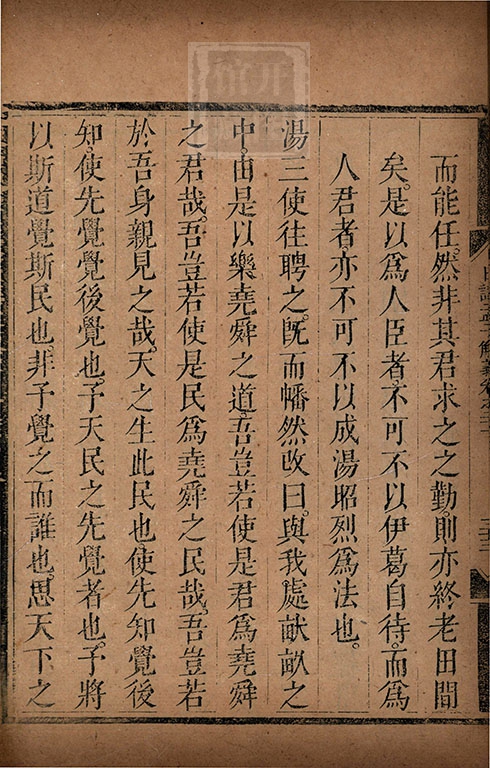 而能任。然非其君求之之勤。則亦終老田間
矣。是以爲人臣者。不可不以伊葛自待。而爲
人君者亦不可不以成湯昭烈爲法也。
湯三使往聘之。旣而幡然改曰。與我處畎畝之
中。由是以樂堯舜之道。吾豈若使是君爲堯舜
之君哉。吾豈若使是民爲堯舜之民哉。吾豈若
於吾身親見之哉。天之生此民也使先知覺後
知。使先覺覺後覺也。予天民之先覺者也。予將
以斯道覺斯民也。非予覺之而誰也。思天下之